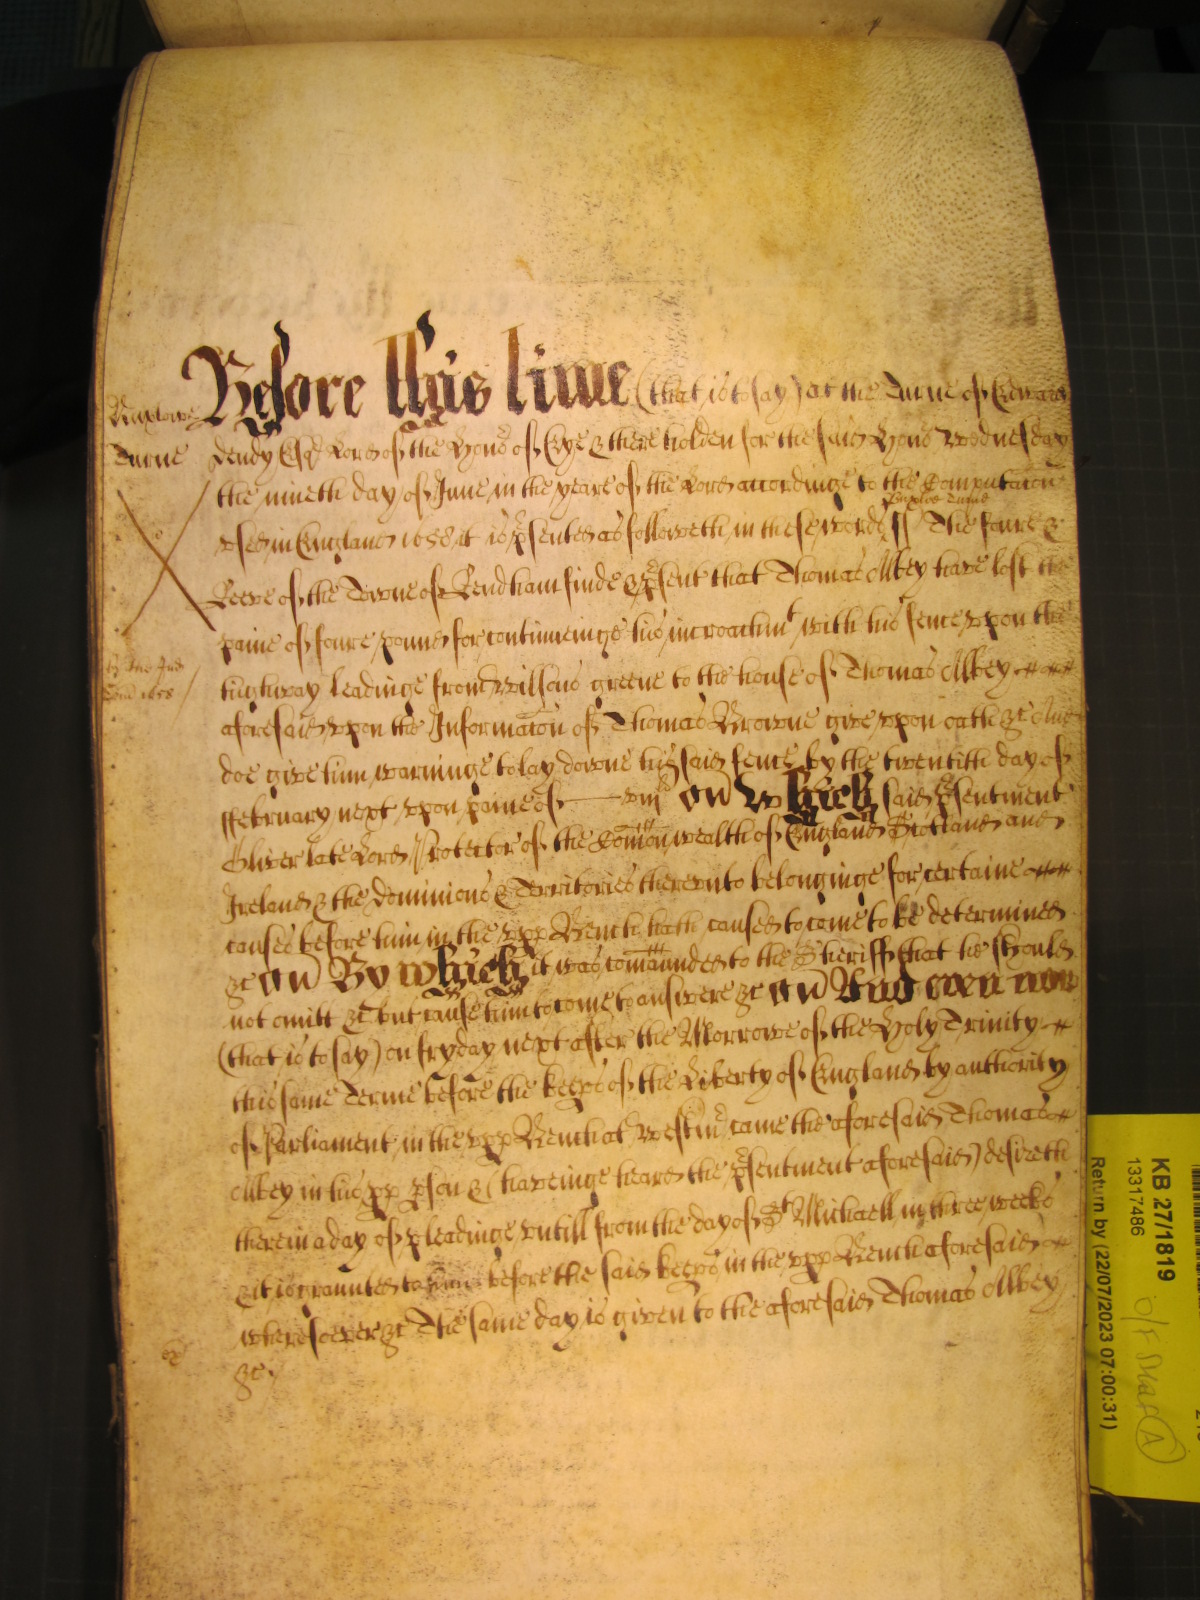 Before this time (that is to say) at the Turne of Edward
Turne Dendy Esqr Lord of the Hono of Eye & there holden for the said Hono Wednesday
the nineth day of June, in the yeare of the Lord accordinge to the Computacon
vsed in England 1658 it is psented as followeth, in these words The foure &
Turne
Reeve of the Towne of Rendham finde & psent that Thomas Abbey have lost the
paine of foure pound for continueinge his incroachmt, with his fence vpon the
highway leadinge from Willsons greene to the house of Thomas Abbey
aforesaid vpon the Informacon of Thomas Browne give vpon oath &c And
doe give him warninge to lay downe his said fence by the twentith day of
ffebruary next vpon paine of — viijli On which said psentment
Oliver late Lord Protector of the Comon wealth of England Scotland and
Ireland & the dominions & Territories therevnto belonginge for certaine
causes before him in the vpp Bench hath caused to come to be determined
&c On By which it was comaunded to the Sheriff that he should
not omitt &c but cause him to come to answere &c On And even now
(that is to say) on fryday next after the Morrowe of the Holy Trinity
this same Terme before the keeps of the Liberty of England by authority
of Parliament, in the vpp Bench at Westmr, came the aforesaid Thomas
Abbey in his pp pson & (haveinge heard the psentment aforesaid) desireth
therein a day of pleadinge vntill from the day of St Michaell in three weeks
& it is graunted to him before the said keeps in the vpp Bench aforesaid
wheresoever &c The same day is given to the aforesaid Thomas Abbey
&c
KB 27/1819
13317486
Return by (22/07/2023 07:00:31)
A